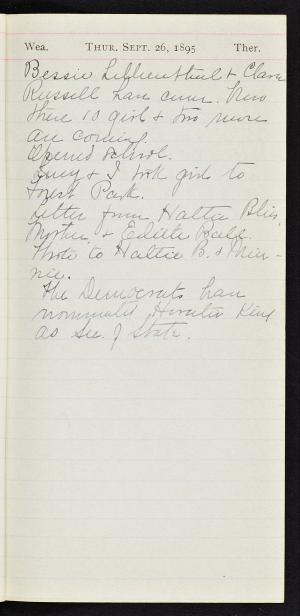 Wea. THUR. SEPT. 26, 1895 Ther.
Bessie Lilienthal & Clara
Russell have come. Now
there 10 girls & two more
are coming.
Opened school.
Lucy & I took girls to
Forest Park.
Letter from Hattie Bliss,
Mother, & Edith Ball.
Wrote to Hattie B. & Min-
nie.
The Democrats have
nominated Horatio King
as Sec. of State.